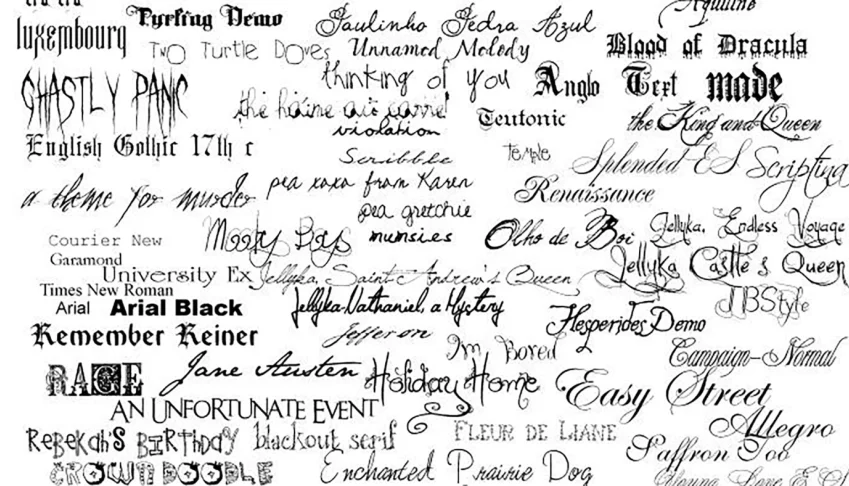 luxembourg
Typeling Demo
Two Turtle Doves
Paulinho Pedra Azul
Unnamed Melody
Aquiline
Blood of Dracula
GHASTLY PANIC
thinking of you
Anglo Text
made
the haine au carré
violation
Teutonic
the King and Queen
English Gothic 17th c
Scribble
Temple
Splended ES
Scriptina
a theme for murder
pea xoxo from Karen
Renaissance
pea gretchie
Courier New
Mooky Pays
munsies
Olho de Boi
Jellyka, Endless Voyage
Garamond
University Ex
Jellyka, Saint-Andrew's Queen
Jellyka Castle's Queen
Times New Roman
Arial
Arial Black
Jellyka Nathaniel, a Mystery
JBStyle
Remember Reiner
Jefferson
Hesperides Demo
I'm Bored
Campaign-Normal
RAGE
Jane Austen
Holiday Home
Easy Street
AN UNFORTUNATE EVENT
Allegro
Rebekah's Birthday
blackout serif
FLEUR DE LIANE
Saffron Too
CROWN DOODLE
Enchanted Prairie Dog
Young Love ES